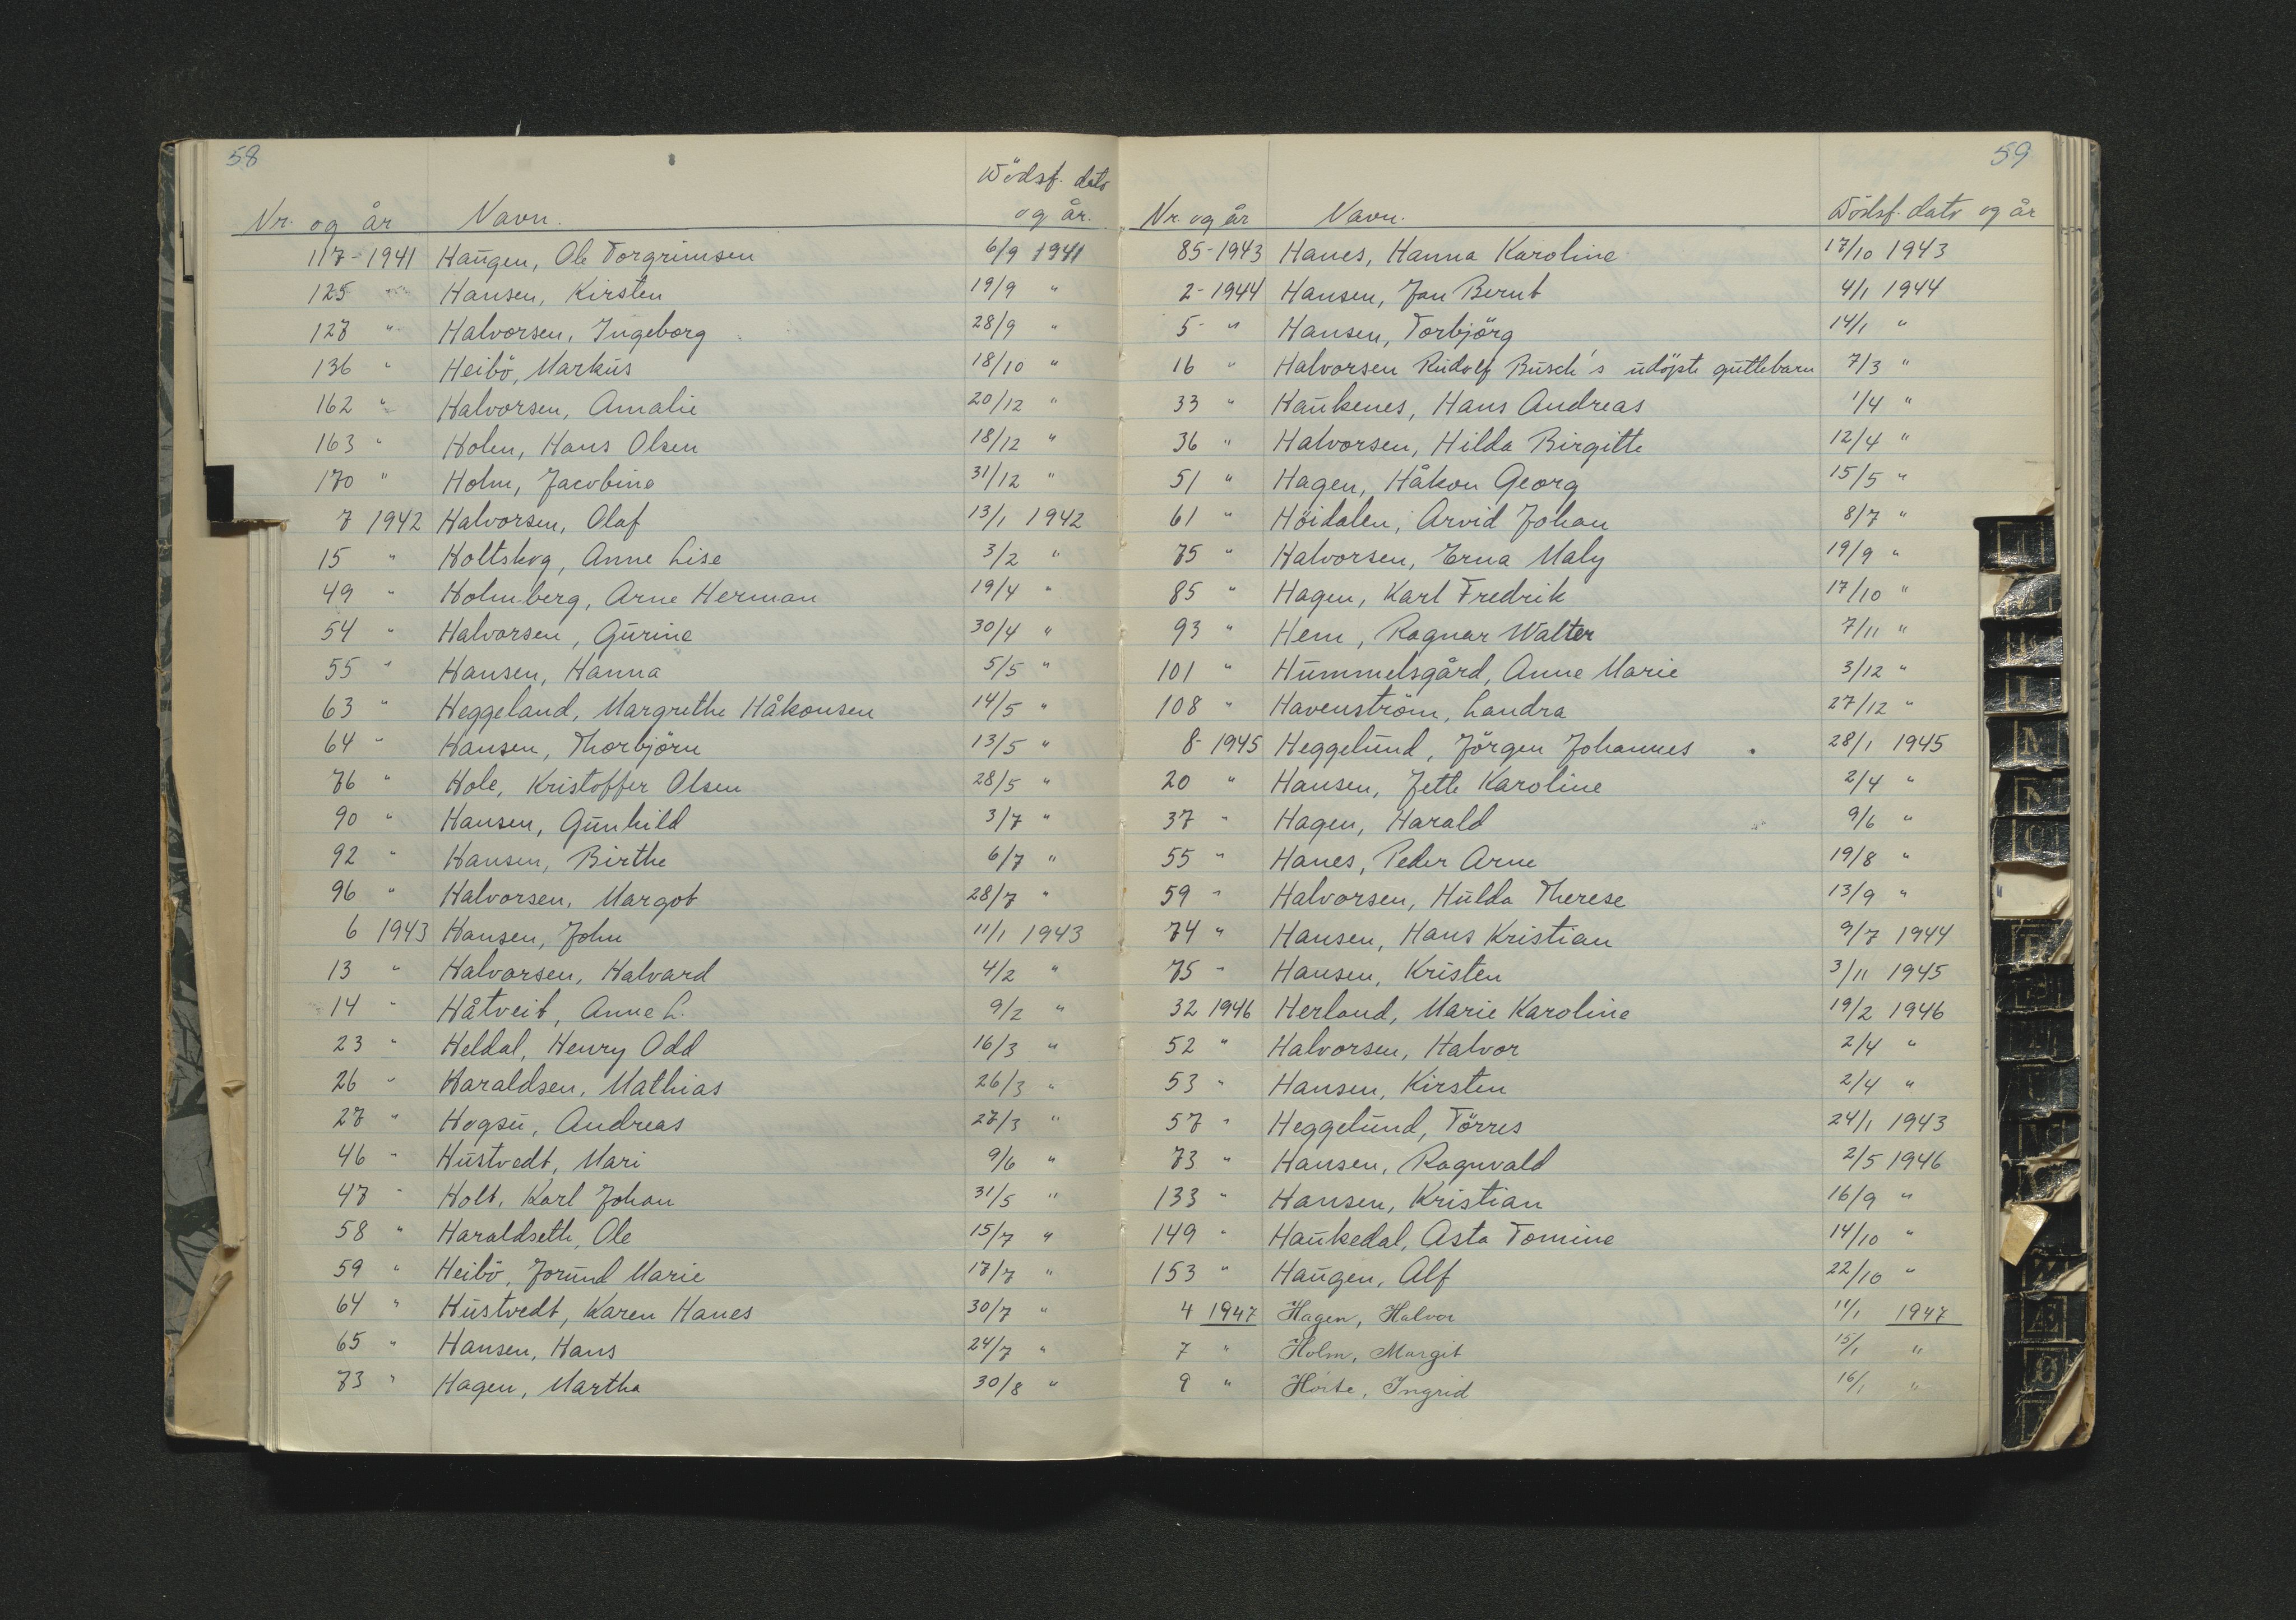 58
Nr. og år Navn. Dödsf. dato og år.
117- 1941 Haugen, Ole Torgrimsen 6/9 1941
125 " Hansen, Kirsten 19/9 "
127 " Halvorsen, Ingeborg 28/9 "
136 " Heibö, Markus 18/10 "
162 " Halvorsen, Amalie 20/12 "
163 " Holm, Hans Olsen 18/12 "
170 " Holm, Jacobine 31/12 "
7 1942 Halvorsen, Olaf 13/1 1942
15 " Holtskog, Anne Lise 3/2 "
49 " Holmberg, Arne Herman 19/4 "
54 " Halvorsen, Gurine 30/4 "
55 " Hansen, Hanna 5/5 "
63 " Heggeland, Margrethe Håkonsen 14/5 "
64 " Hansen, Thorbjörn 13/5 "
76 " Hole, Kristoffer Olsen 28/5 "
90 " Hansen, Gunhild 3/7 "
92 " Hansen, Birthe 6/7 "
96 " Halvorsen, Margot 28/7 "
6 1943 Hansen, John 11/1 1943
13 " Halvorsen, Halvard 4/2 "
14 " Håtveit, Anne L. 9/2 "
23 " Heldal, Henry Odd 16/3 "
26 " Haraldsen, Mathias 26/3 "
27 " Hogsu, Andreas 27/3 "
46 " Hustvedt, Mari 9/6 "
47 " Holt, Karl Johan 31/5 "
58 " Haraldseth, Ole 15/7 "
59 " Heibö, Jorund Marie 17/7 "
64 " Hustvedt, Karen Hanes 30/7 "
65 " Hansen, Hans 24/7 "
73 " Hagen, Martha 30/8 "
59
Nr. og år Navn. Dödsf. dato og år
85- 1943 Hanes, Hanna Karoline 17/10 1943
2- 1944 Hansen, Jan Bernt 4/1 1944
5- " Hansen, Torbjörg 14/1 "
16 " Halvorsen Rudolf Busch's udöpte guttebarn 7/3 "
33 " Haukenes, Hans Andreas 1/4 "
36 " Halvorsen, Hilda Birgitte 12/4 "
51 " Hagen, Håkon Georg 15/5 "
61 " Höidalen, Arvid Johan 8/7 "
75 " Halvorsen, Erna Maly 19/9 "
85 " Hagen, Karl Fredrik 17/10 "
93 " Hem, Ragnar Walter 7/11 "
101 " Hummelsgård, Anne Marie 3/12 "
108 " Havenström, Landra 27/12 "
8- 1945 Heggelund, Jörgen Johannes 28/1 1945
20 " Hansen, Jette Karoline 2/4 "
37 " Hagen, Harald 9/6 "
55 " Hanes, Peder Arne 19/8 "
59 " Halvorsen, Hulda Therese 13/9 "
74 " Hansen, Hans Kristian 9/7 1944
75 " Hansen, Kristen 3/11 1945
32 1946 Herland, Marie Karoline 19/2 1946
52 " Halvorsen, Halvor 2/4 "
53 " Hansen, Kirsten 2/4 "
57 " Heggelund, Törres 24/1 1943
73 " Hansen, Ragnvald 2/5 1946
133 " Hansen, Kristian 16/9 "
149 " Haukedal, Asta Tomine 14/10 "
153 " Haugen, Alf 22/10 "
4 1947 Hagen, Halvor 11/1 1947
7 " Holm, Margit 15/1 "
9 " Ingrid 16/1 "
M
N
Æ
Ø